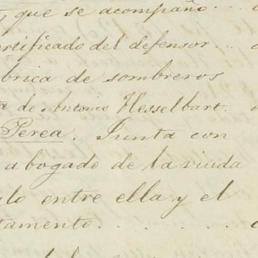 que se acompaño
ertificado del defensor
brica de sombreros
a de Antonio Hesselbart.
Perea. Junta con
abogado de la viuda
lo entre ella y el
tamento.